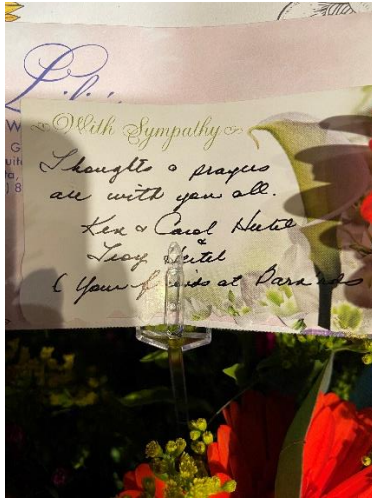 With Sympathy
Thoughts & prayers
are with you all.
Ken & Carol Hertel
&
Troy Hertel
( Your friends at
W
G
uit
ta,
) 8